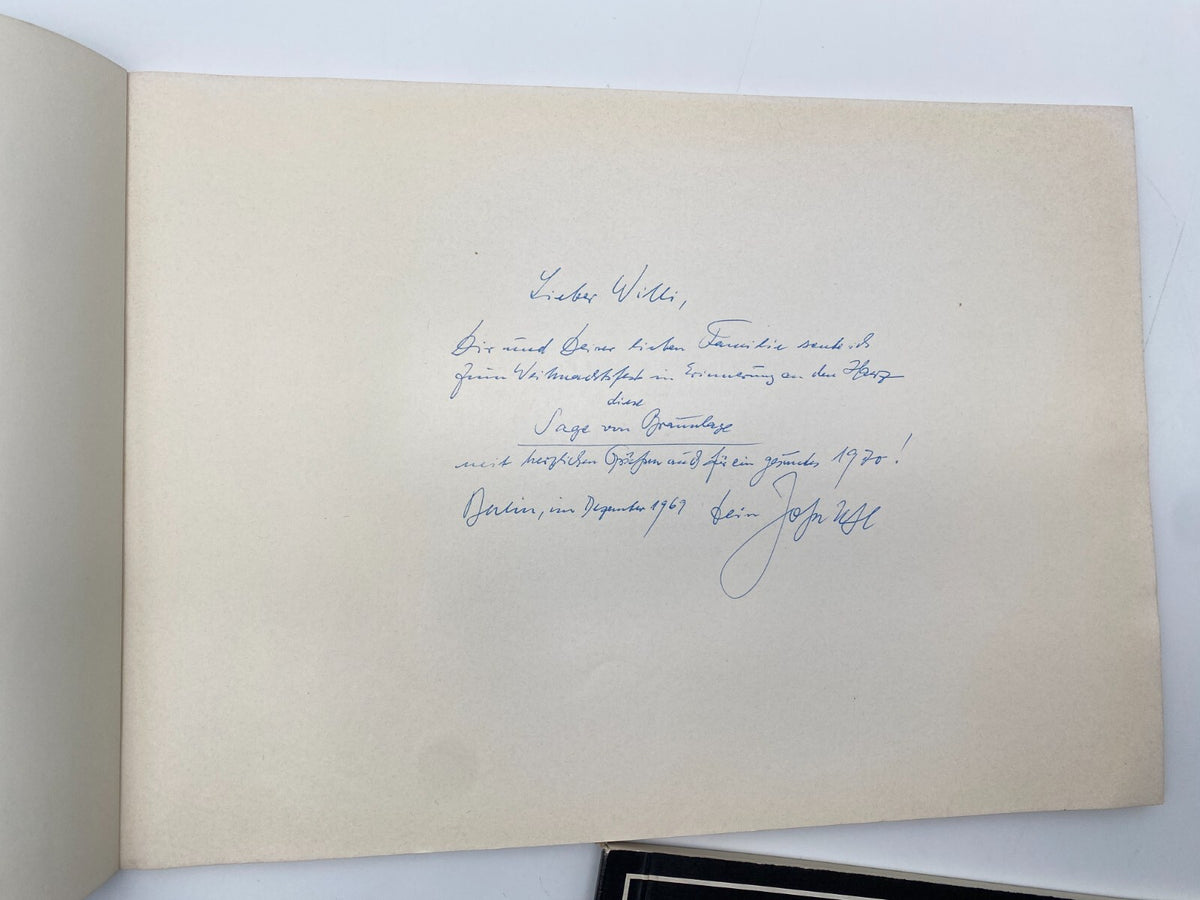 Lieber Willi,
Dir und Deiner lieben Familie sende ich
zum Weihnachtsfest in Erinnerung an den Harz
diese
Sage von Braunlage
mit herzlichen Grüßen auch für ein gesundes 1970!
Berlin, im Dezember 1969 Dein